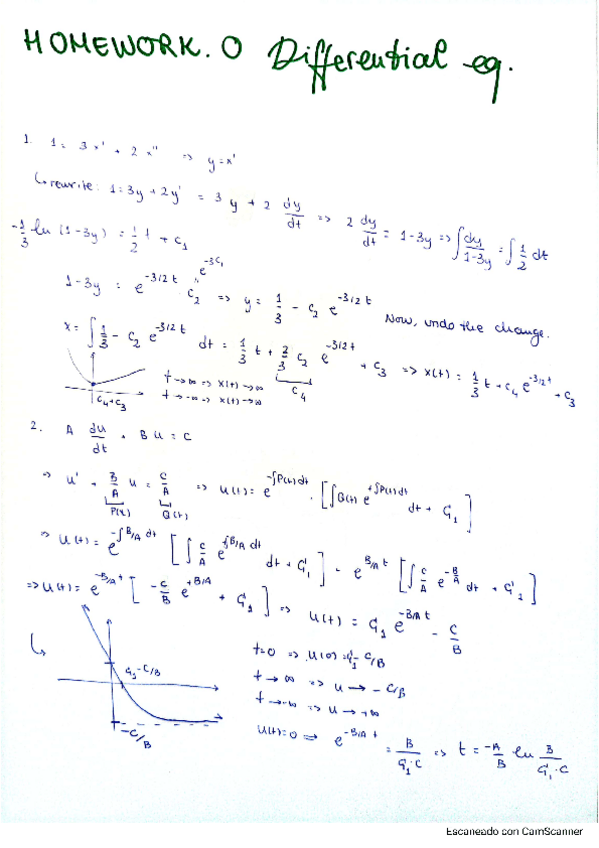 HOMEWORK. 0 Differential eq.
1. 1 = 3x' + 2x'' => y = x'
↳ rewrite: 1 = 3y + 2y' = 3y + 2 dy/dt => 2 dy/dt = 1-3y => ∫ dy/1-3y = ∫ 1/2 dt
-1/3 ln (1-3y) = 1/2 t + c1
e^-3c1
1-3y = e^-3/2 t c2 => y = 1/3 - c2 e^-3/2 t Now, undo the change.
x = ∫ 1/3 - c2 e^-3/2 t dt = 1/3 t + 2/3 c2 e^-3/2 t + c3 => x(t) = 1/3 t + c4 e^-3/2 t + c3
c4
t → ∞ => x(t) → ∞
t → -∞ => x(t) → ∞
c4+c3
2. A du/dt + B u = C
=> u' + B/A u = C/A => u(t) = e^-∫P(t)dt · [∫Q(t) e^+∫P(t)dt dt + C1]
P(t) Q(t)
=> u(t) = e^-∫B/A dt [∫ C/A e^∫B/A dt dt + C1] = e^B/A t [∫ C/A e^-B/A dt + C1]
=> u(t) = e^-B/A t [-C/B e^+B/A + C1] => u(t) = C1 e^-B/A t - C/B
↳ C1-C/B
-C/B
t=0 => u(0) = C1 - C/B
t → ∞ => u → -C/B
t → -∞ => u → +∞
u(t)=0 => e^-B/A t = B/C1·C => t = -A/B ln B/C1·C
Escaneado con CamScanner